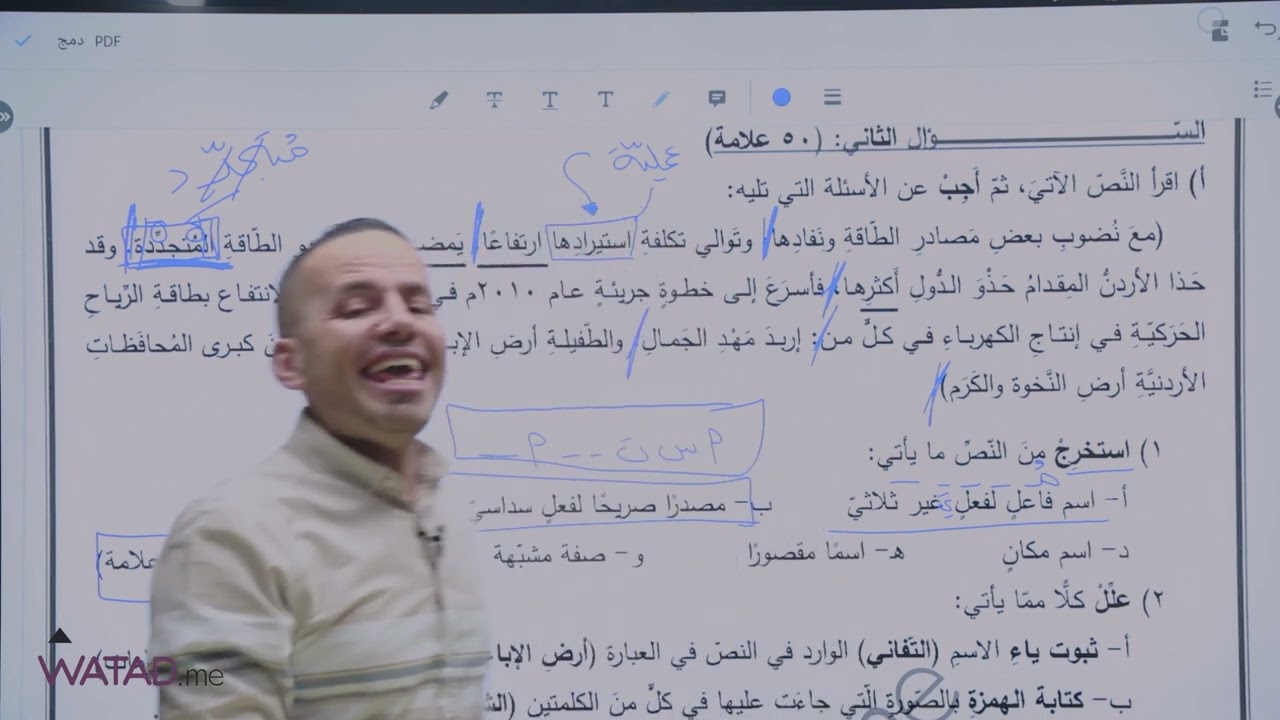 PDF دمج
السّـؤال الثاني: (٥٠ علامة)
أ) اقرأ النَّصّ الآتيَ، ثمّ أَجِبْ عن الأسئلة التي تليه:
عمليّة
(معَ نُضوبِ بعضِ مَصادرِ الطّاقة ونَفادِها، وتَوالي تكلفةِ استيرادِها ارتفاعًا يَمضـ و الطّاقةِ المُتجدّدة، وقد
حَذا الأردنُّ المِقدامُ حَذْوَ الدُّولِ أكثرِها، فأسرَعَ إلى خطوةٍ جريئةٍ عام ٢٠١٠م فـي لانتفاع بطاقةِ الرِّياحِ
الحَرَكيّةِ فـي إنتاجِ الكهرباءِ فـي كلٍّ من: إربدَ مَهْدِ الجَمالِ، والطّفيلةِ أرضِ الإبـ كبرى المُحافَظاتِ
الأردنيَّةِ أرضِ النَّخوة والكَرَم)
م س ت -- م --
١) استخرِجْ مِنَ النّصِّ ما يأتي:
أ- اسم فاعلٍ لفعلٍ غير ثلاثيّ ب- مصدرًا صريحًا لفعلٍ سداسيّ
د- اسم مكانٍ هـ- اسمًا مقصورًا و- صفة مشبّهة علامة)
٢) علِّلْ كلًّا ممّا يأتي:
أ- ثبوت ياءِ الاسمِ (التّفاني) الوارد في النصّ في العبارة (أرضِ الإبا
ب- كتابة الهمزةِ بالصّورةِ الّتي جاءَت عليها في كلٍّ منَ الكلمتين
WATAD.me